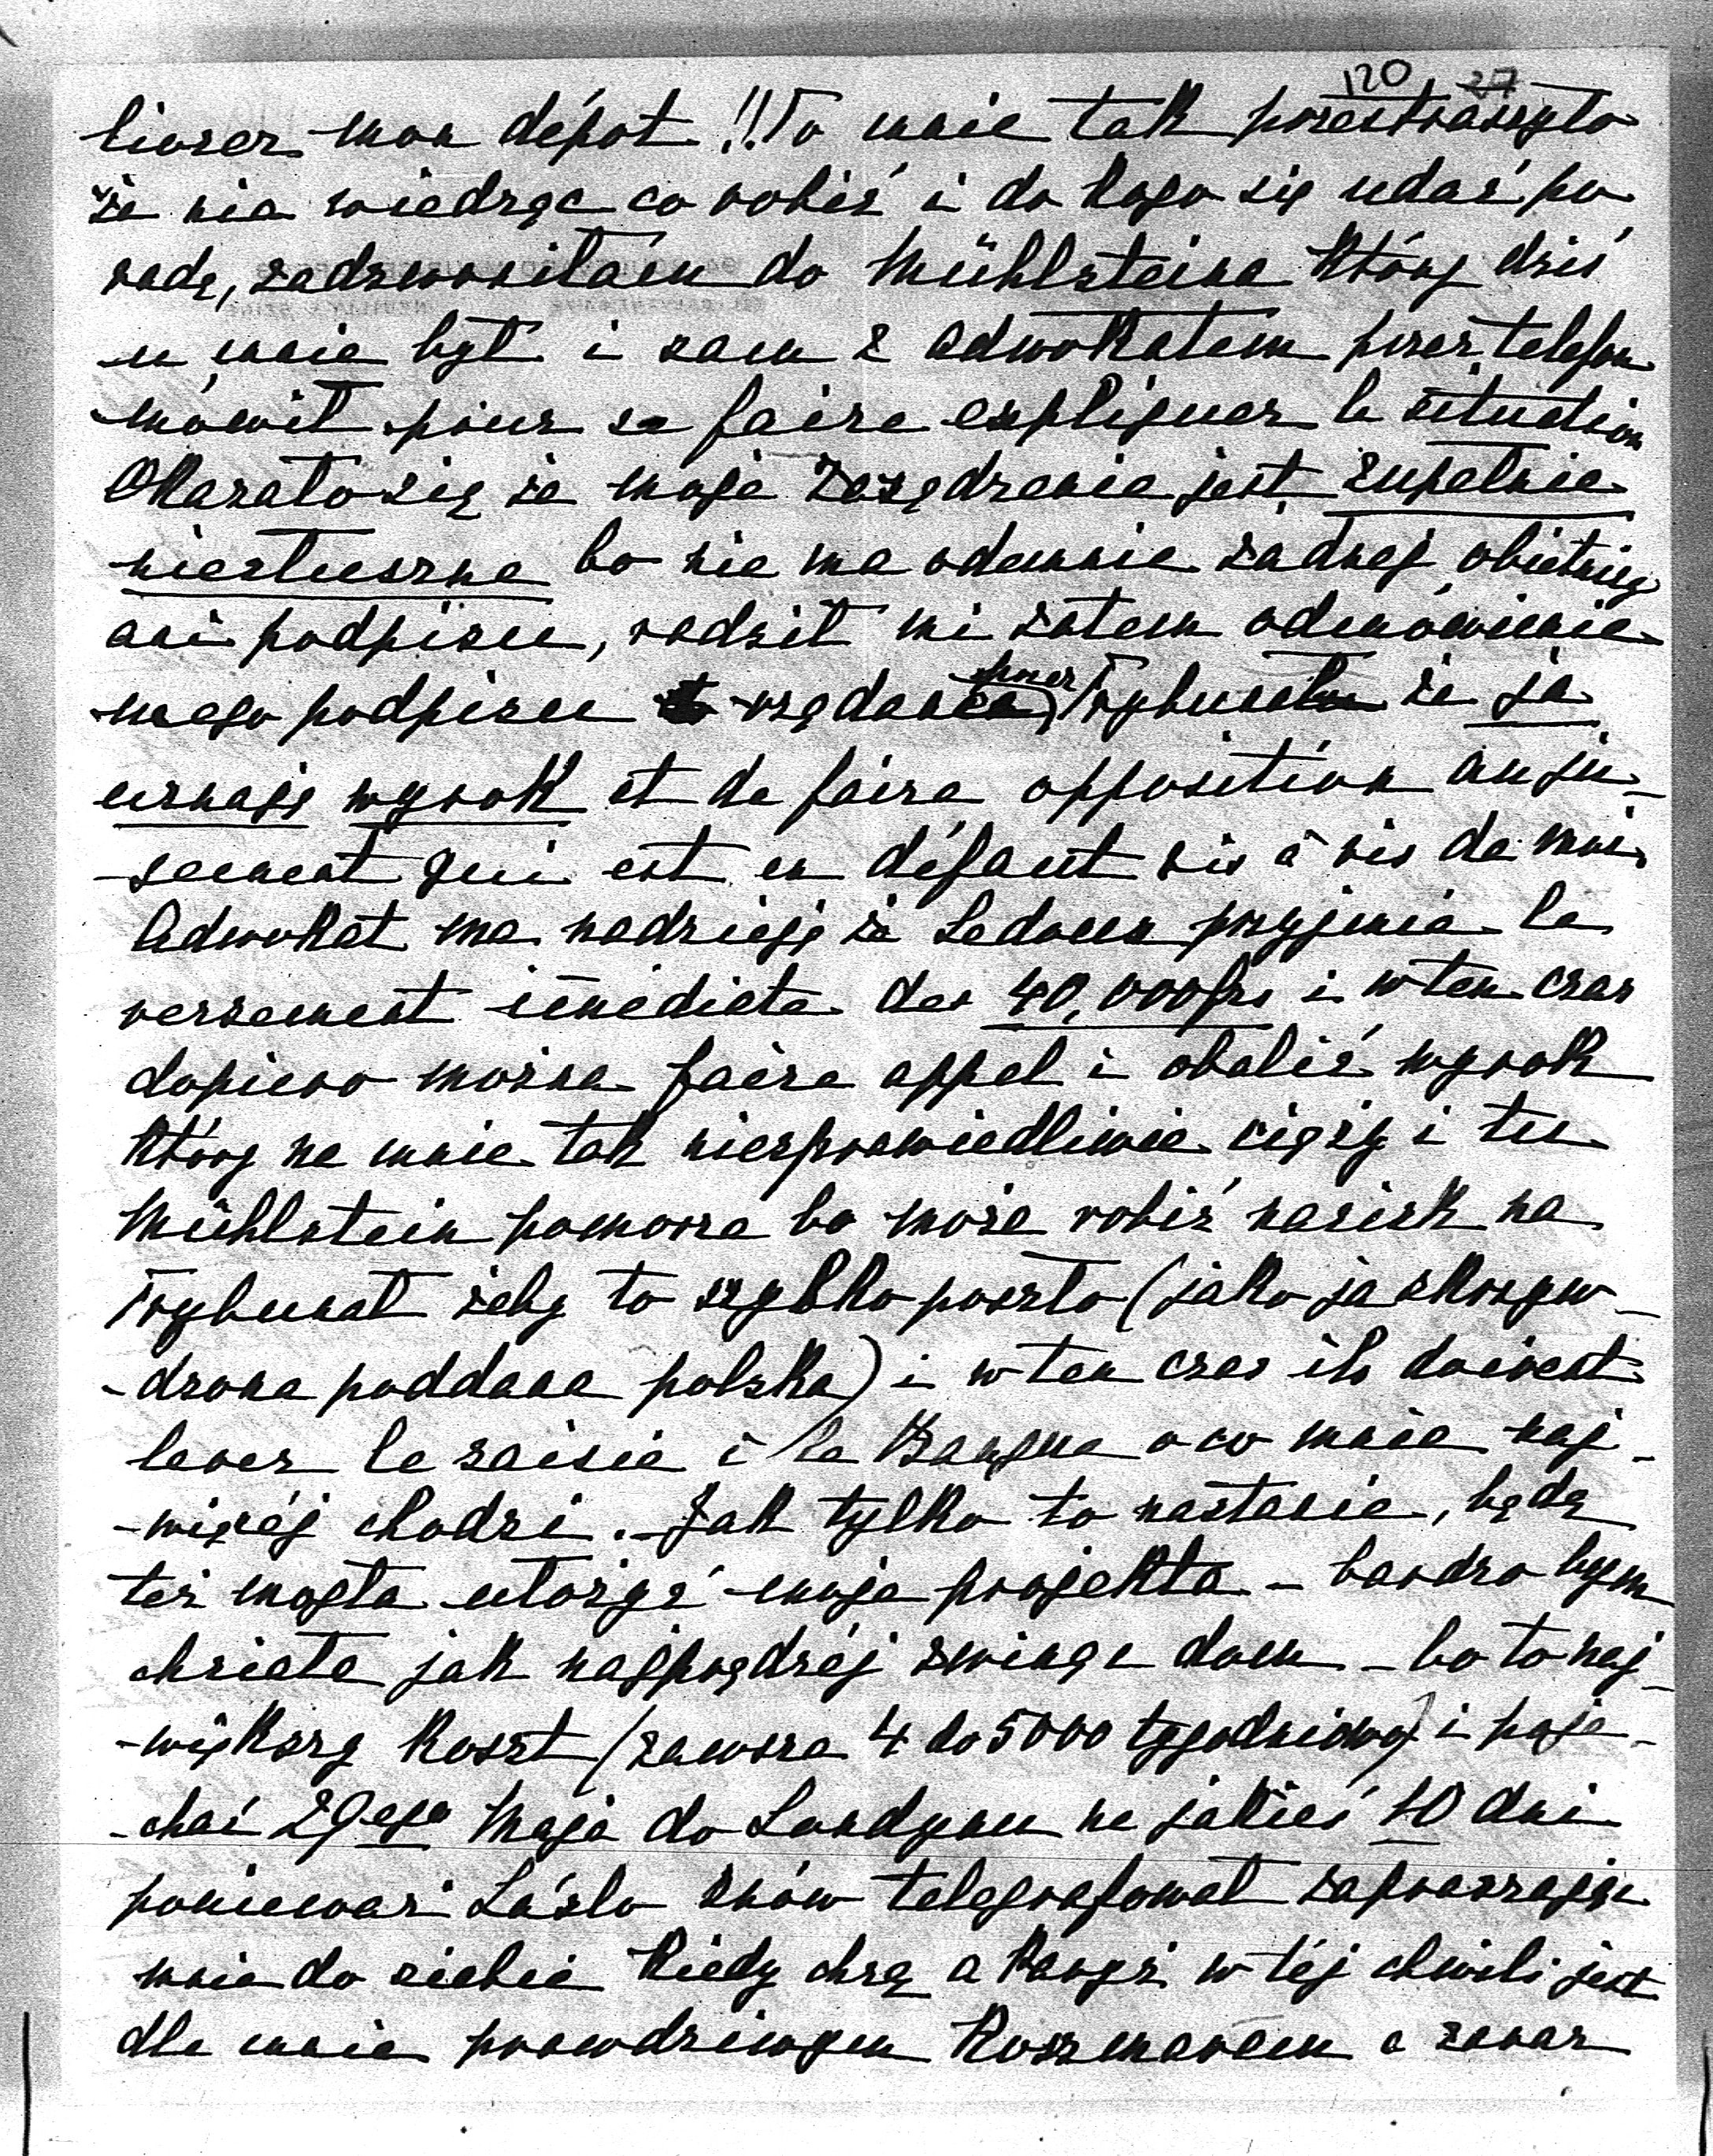 120 27
livrer mon dépot !! To mnie tak przestraszyło
że nie wiedząc co robić i do kogo się udać po
radę, zadzwoniłam do Mühlsteina który dziś
u mnie był i sam z adwokatem przez telefon
mówił pour se faire expliquer la situation
Okazało się że moje zasądzenie jest zupełnie
niesłuszne bo nie ma odemnie żadnej obietnicy
ani podpisu, radził mi zatem odmówienie
mego podpisu rządania przez Trybunał że ja
uznaję wyrok et de faire opposition au ju-
-gement qui est en défaut vis à vis de moi,
Adwokat ma nadzieję że Ledoux przyjmie le
versement imédiate des 40,000 frs i w ten czas
dopiero można faire appel i obalić wyrok
który na mnie tak niesprawiedliwie ciąży i tu
Mühlstein pomoże bo może robić nacisk na
Trybunał żeby to szybko poszło (jako ja skrzyw-
-dzona poddana polska) i w ten czas ils doivent
lever la saisie à la Banque o co mnie naj-
-więcéj chodzi. - Jak tylko to nastanie, będę
też mogła ułożyć moje projekta - bardzo bym
chciała jak najprędzéj zwinąć dom - bo to naj-
-większy koszt (zawsze 4 do 5000 tygodniowo) i poje-
-chać 29ego Maja do Londynu na jakieś 10 dni
ponieważ László znów telegrafował zapraszając
mnie do siebie kiedy chcę a Paryż w téj chwili jest
dla mnie prawdziwym koszmarem a zaraz